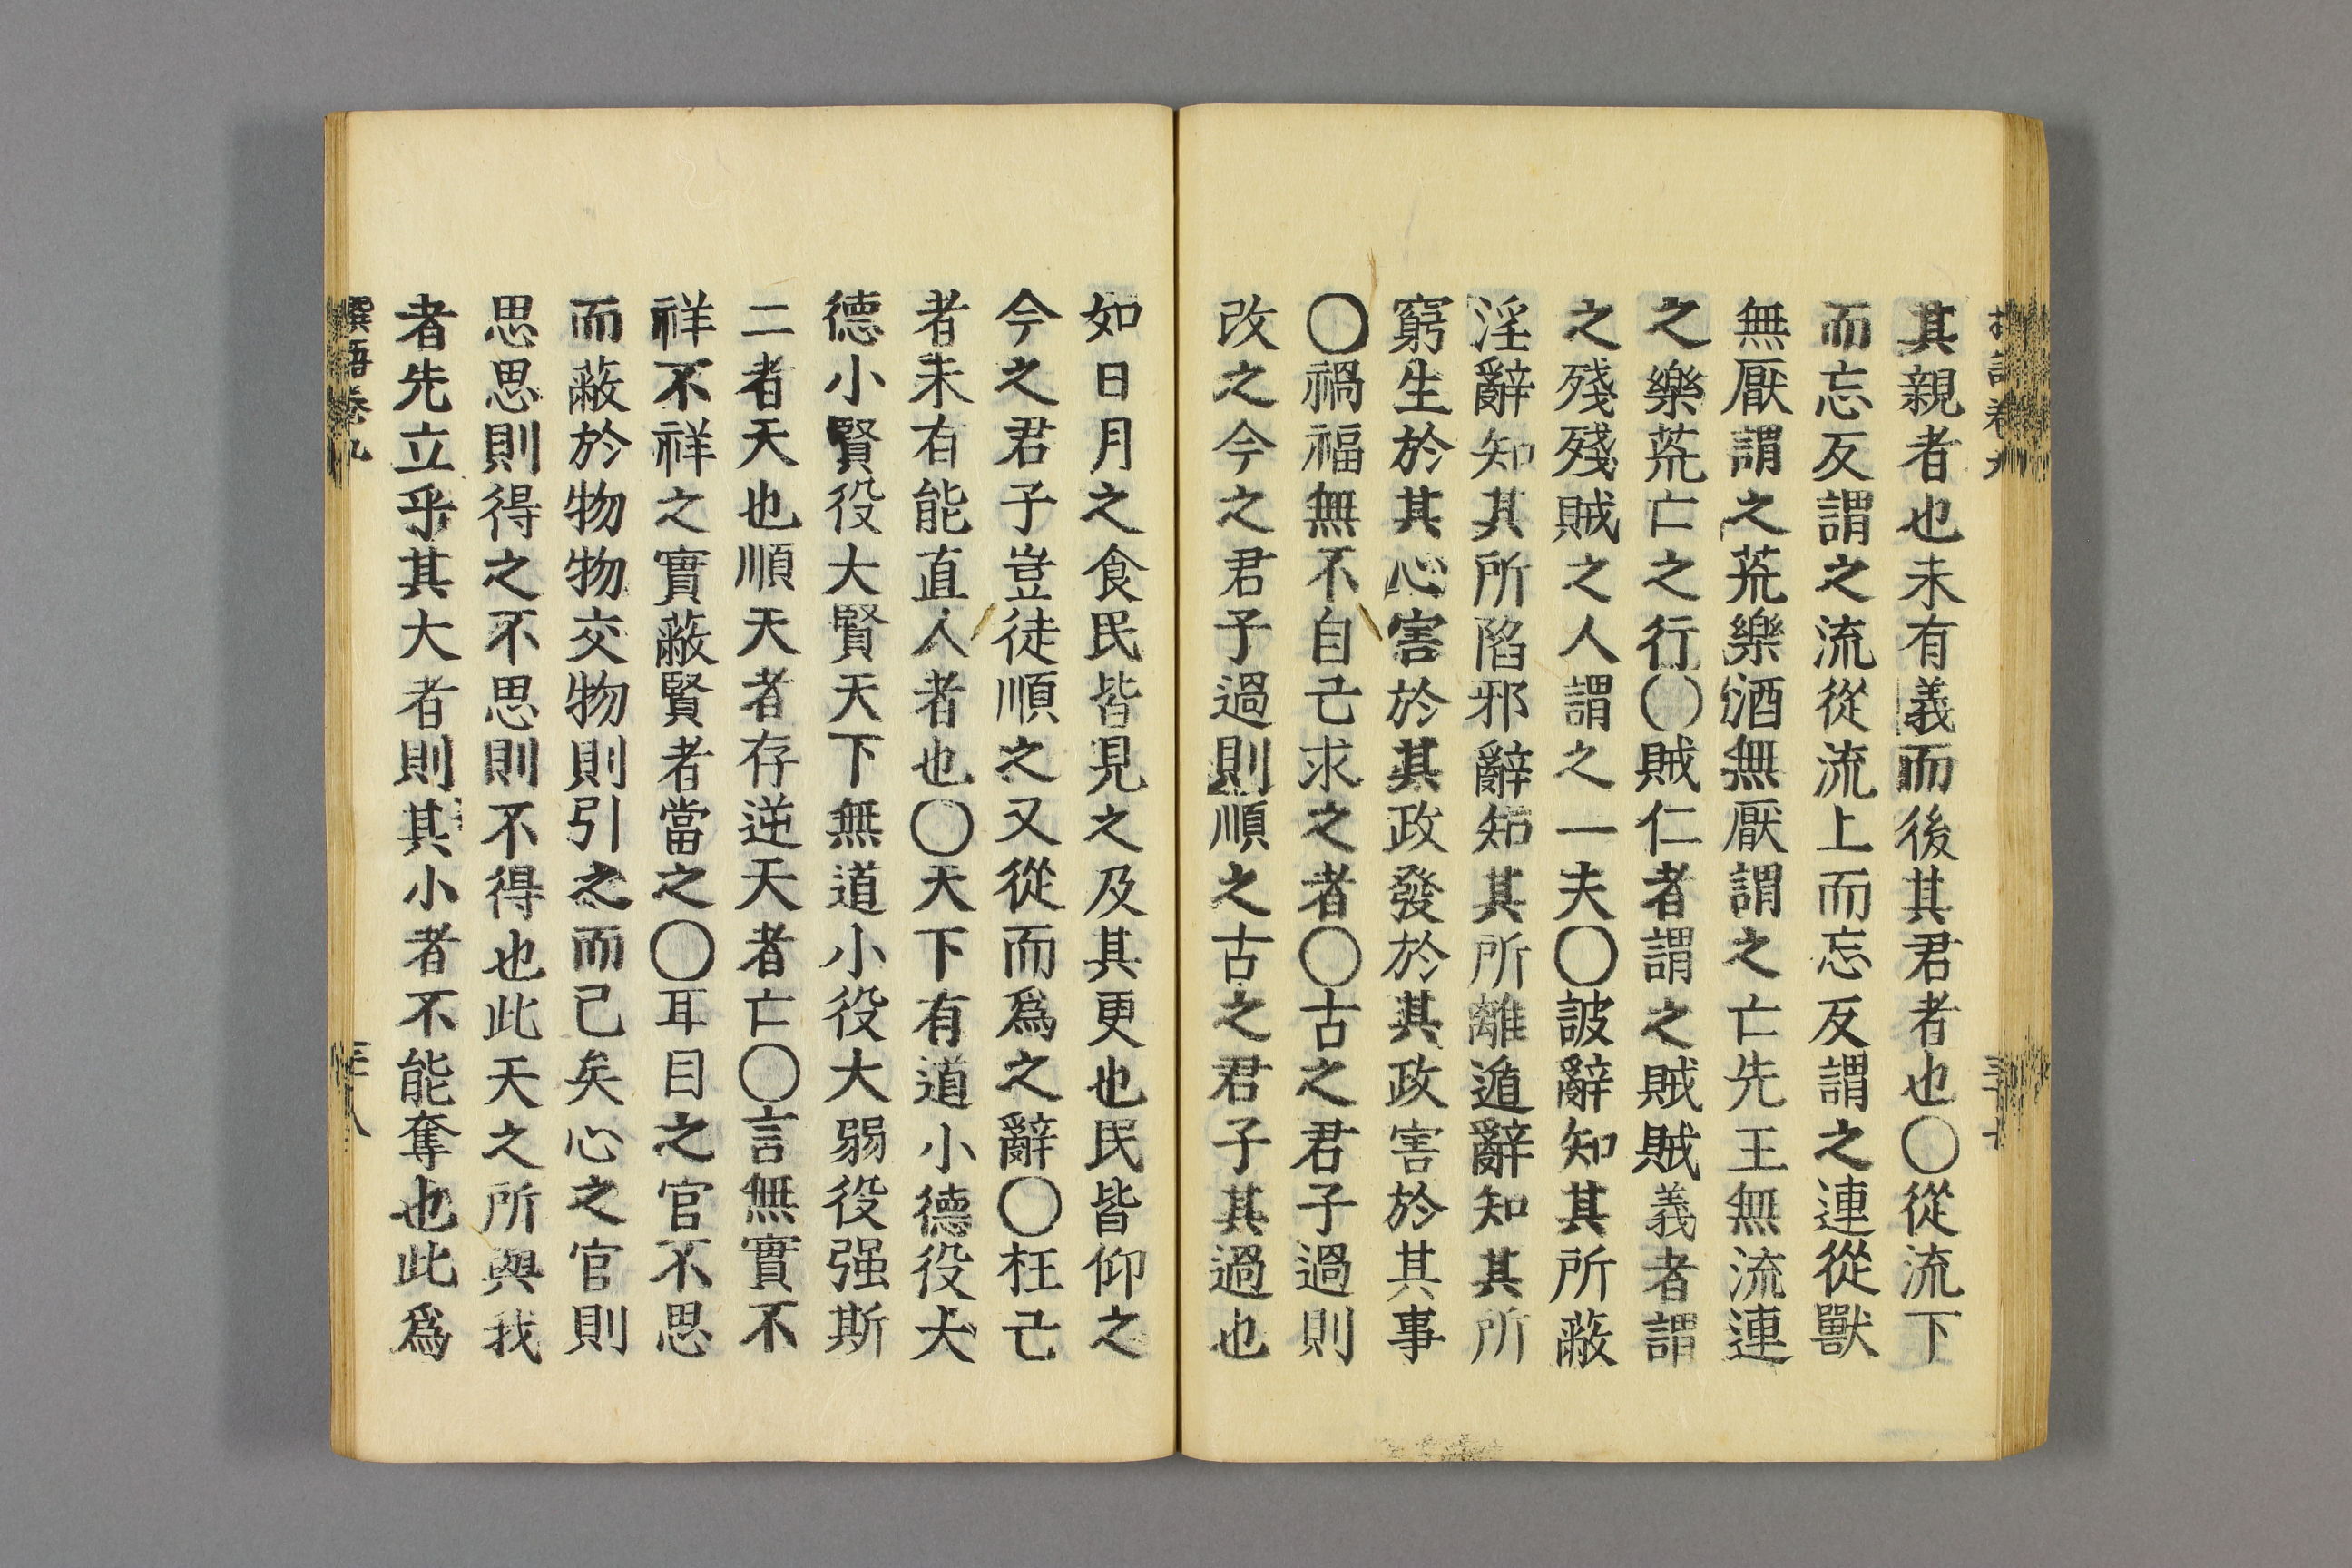 其親者也未有義而後其君者也〇從流下
而忘反謂之流從流上而忘反謂之連從獸
無厭謂之荒樂酒無厭謂之亡先王無流連
之樂荒亡之行〇賊仁者謂之賊賊義者謂
之殘殘賊之人謂之一夫〇詖辭知其所蔽
淫辭知其所陷邪辭知其所離遁辭知其所
窮生於其心害於其政發於其政害於其事
〇禍福無不自己求之者〇古之君子過則
改之今之君子過則順之古之君子其過也
如日月之食民皆見之及其更也民皆仰之
今之君子豈徒順之又從而爲之辭〇枉己
者未有能直人者也〇天下有道小德役大
德小賢役大賢天下無道小役大弱役强斯
二者天也順天者存逆天者亡〇言無實不
祥不祥之實蔽賢者當之〇耳目之官不思
而蔽於物物交物則引之而已矣心之官則
思思則得之不思則不得也此天之所與我
者先立乎其大者則其小者不能奪也此爲
撰語卷九